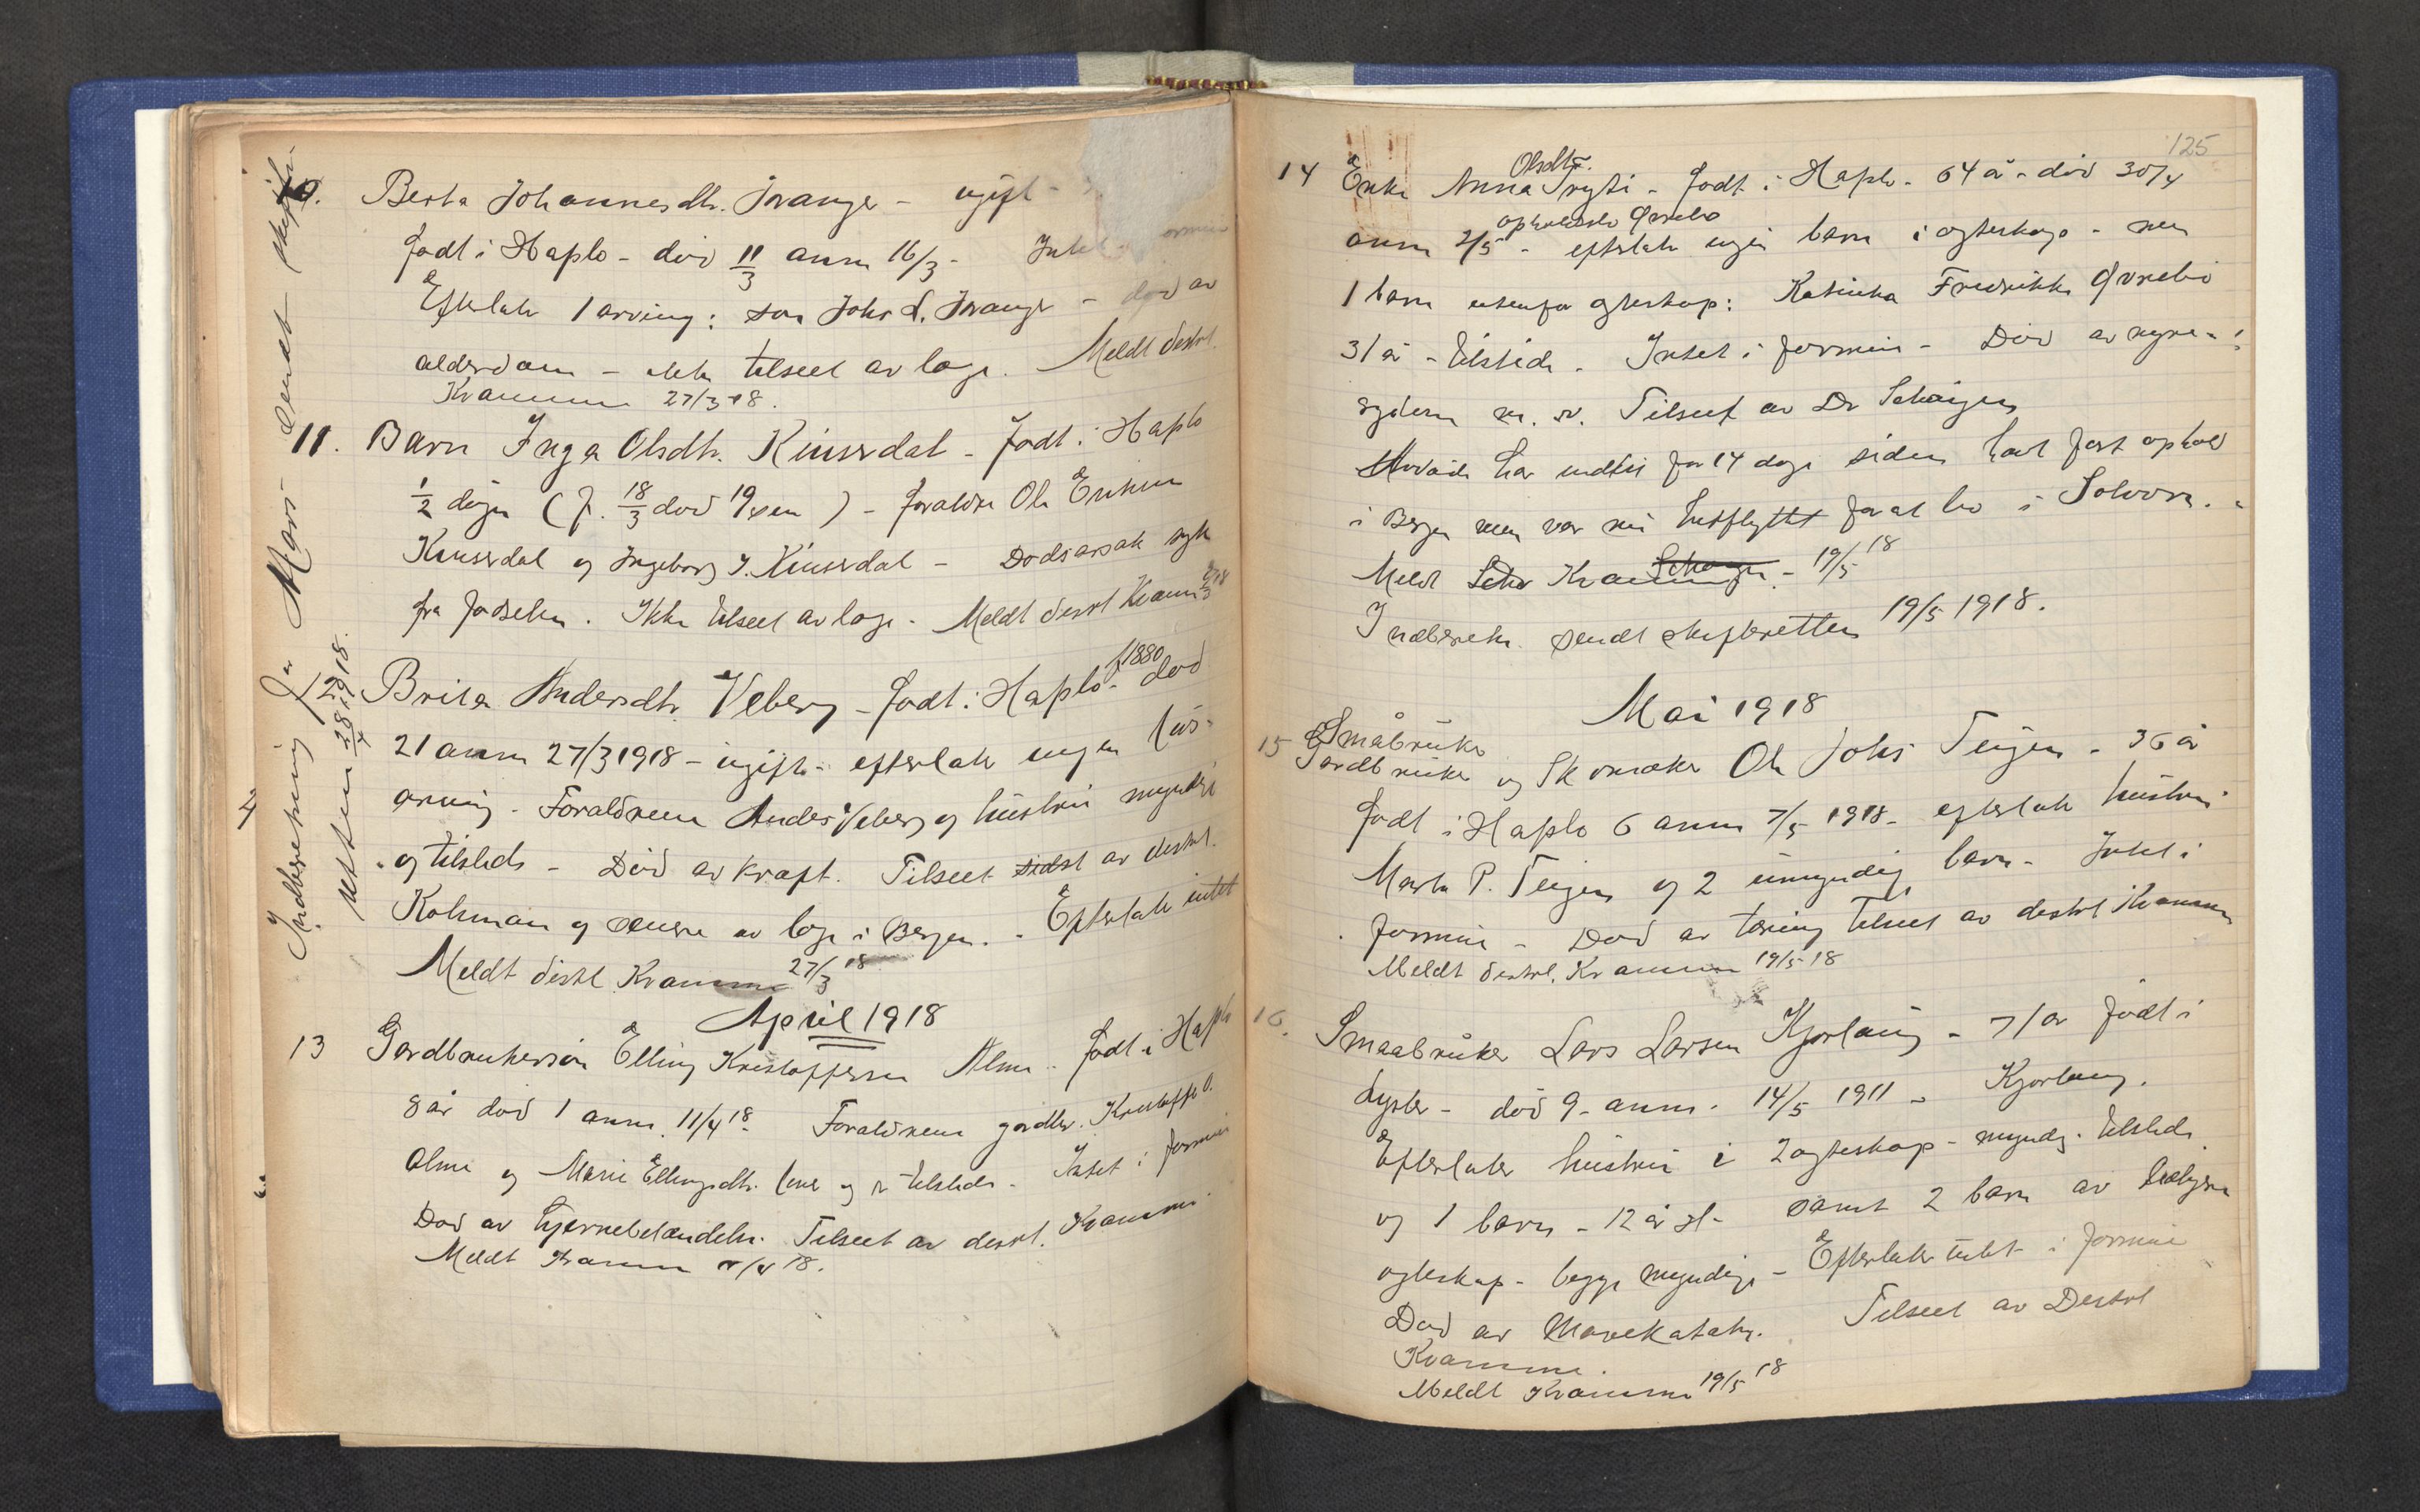 10. Berta Johannesdtr. Kvange - ugift -
født i Haflo - død 11/3 anm 16/3 - Intet
Efterlater 1 arving: søn Johs L. Kvange - død av
alderdom - ikke tilseet av læge. Meldt distrl.
Kvamme 27/3 18.
11. Barn Inga Olsdtr. Kinserdal - født i Haflo
1/2 døgn (f. 18/3 død 19 sm) - forældre Ole Eriksen
Kinserdal og Ingeborg J. Kinserdal - Dødsårsak syk
fra fødselen. Ikke tilseet av læge - Meldt distrl Kvamm
12 Brita Andersdtr. Veberg - født i Haflo f 1880 - død
21 anm 27/3 1918 - ugift - efterlater ingen livs-
arving - Forældrene Anders Veberg og hustru myndige
og tilstede - Død av kræft. Tilseet sidst av distrl.
Kohman og senere av læge i Bergen. - Efterlater intet
Meldt distrl Kvamme 27/3 18
April 1918
13 Gardbrukersøn Elling Kristoffersen Alme - født i Haflo
8 år død 1 anm. 11/4 18. Forældrene gardbr. Kristoffer O.
Alme og Marie Ellingsdtr. lever og er tilstede - Intet i formue
Død av hjernebetændelse. Tilseet av distrl. Kvamme.
Meldt Kvamm 18.
Indberetning for Mars sendt skifte-
retten 28/4 1918.
125
14 Enke Anna Olsdtr. Tryti - født i Haflo - 64 år - død 30/4
anm 2/5 - opholdende Ørrebø efterlater ingen barn i egteskap - men
1 barn utenfor egteskap: Katinka Fredrikke Ørrebø
31 år - tilstede. Intet i formue - Død av nyre-
sydom m. v. Tilseet av Dr Schaigen
Avdøde har indtil for 14 dage siden havt fast ophold
i Bergen men var nu hitflyttet for at bo i Solvorn.
Meldt Scha Kvamme Schaigen - 19/5 18
Indberetn. sendt skifteretten 19/5 1918.
Mai 1918
15 Småbruker
Gardbruker og Skomaker Ole Johs Teigen - 36 år
født i Haflo 6 anm 7/5 1918 - efterlater hustru
Marta P. Teigen og 2 umyndig barn - Intet i
formue - Død av tæring tilseet av distrl Kvamme
Meldt distrl. Kvamme 19/5 18
16. Smaabruker Lars Larsen Kjorlaug - 71 år født i
Lyster - død 9 - anm. 14/5 1911 - Kjorlaug.
Efterlater hustru i 2 egteskap - myndig. tilstede
og 1 barn - 12 år H - samt 2 barn av tidligere
egteskap - begge myndige - Efterlater intet i formue
Død av Mavekatahr. Tilseet av Distrl
Kvamme.
Meldt Kvamme 19/5 18